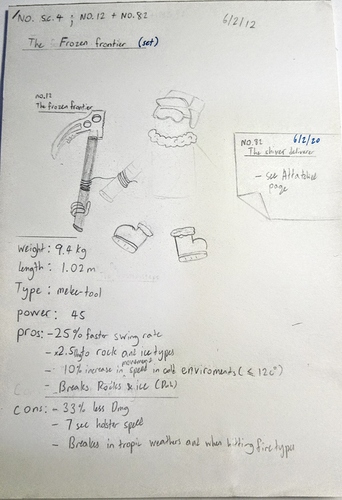 NO. SC.4 ; NO.12 + NO.82
6/2/12
The Frozen frontier (set)
no.12
The frozen frontier
NO.82 6/2/20
The shiver deliverer
- see Attatched
page
weight: 9.4 kg
length: 1.02m
Type: melee-tool
power: 45
pros: -25% faster swing rate
- x2.5 to rock and ice types
- 10% increase in movement speed in cold enviroments (≤ 12c°)
- Breaks Rocks & ice
cons: - 33% less Dmg
- 7 sec holster speed
- Breaks in tropic weathers and when hitting fire types